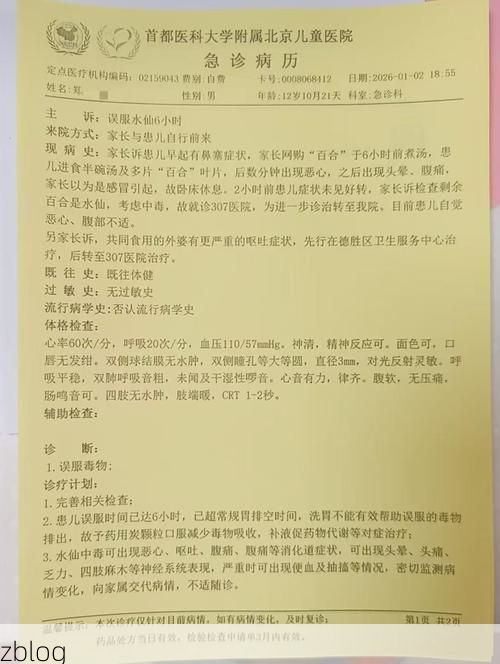 首都医科大学附属北京儿童医院
急诊病历
定点医疗机构编码：02159043 费别:自费 卡号:0008068412 日期:2026-01-02 18:55
姓名:郑 性别:男 年龄:12岁10月21天 科室:急诊科
主 诉：误服水仙6小时
来院方式：家长与患儿自行前来
现 病 史：家长诉患儿早起有鼻塞症状，家长网购“百合”于6小时前煮汤，患
儿进食半碗汤及多片“百合”叶片，后数分钟出现恶心，之后出现头晕、腹痛，
家长以为是感冒引起，故卧床休息。2小时前患儿症状未见好转，家长诉检查剩余
百合是水仙，考虑中毒，故就诊307医院，为进一步诊治转至我院。目前患儿自觉
恶心、腹部不适。
另家长诉，共同食用的外婆有更严重的呕吐症状，先行在德胜区卫生服务中心治
疗，后转至307医院治疗。
既 往 史：既往体健
过 敏 史：无过敏史
流行病学史:否认流行病学史
体格检查：
心率60次/分，呼吸20次/分，血压110/57mmHg。神清，精神反应可。面色可。口
唇无发绀。双侧球结膜无水肿，双侧瞳孔等大等圆，直径3mm，对光反射灵敏。呼
吸平稳，双肺呼吸音粗，未闻及干湿性啰音。心音有力，律齐。腹软，无压痛，
肠鸣音可。四肢无水肿，肢端暖，CRT 1-2秒。
辅助检查：
诊 断：
1.误服毒物;
诊疗计划：
1.完善相关检查;
2.患儿误服时间已达6小时，已超常规胃排空时间，洗胃不能有效帮助误服的毒物
排出，故予药用炭颗粒口服减少毒物吸收，补液促药物代谢等对症治疗;
3.水仙中毒可出现恶心、呕吐、腹痛、腹痛等消化道症状，可出现头晕、头痛、
乏力、四肢麻木等神经系统表现，严重时可出现便血及抽搐等情况，密切监测病
情变化，向家属交代病情，不适随诊。
温馨提示：本次诊疗仅针对目前病情，如有病情变化，及时复诊； 第1页 共2页
药品处方当日有效。检验检查申请单3月内有效。
zblog